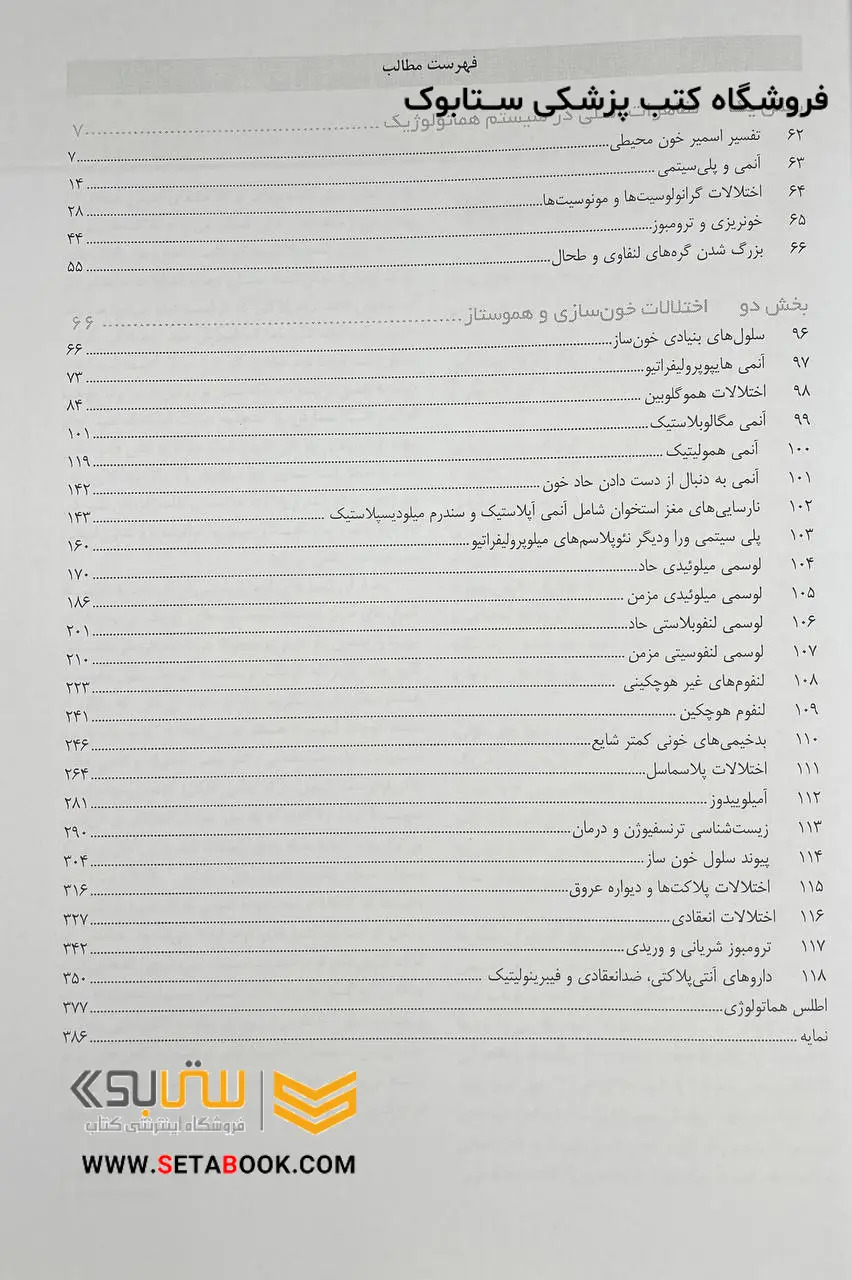 فهرست مطالب
فروشگاه کتب پزشکی ستابوک
در سیستم هماتولوژیک ............ ۷
۶۲ تفسیر اسمیر خون محیطی ............ ۷
۶۳ آنمی و پلی‌سیتمی ............ ۱۴
۶۴ اختلالات گرانولوسیت‌ها و مونوسیت‌ها ............ ۲۸
۶۵ خونریزی و ترومبوز ............ ۴۴
۶۶ بزرگ شدن گره‌های لنفاوی و طحال ............ ۵۵
بخش دو اختلالات خون‌سازی و هموستاز ............ ۶۶
۹۶ سلول‌های بنیادی خون‌ساز ............ ۶۶
۹۷ آنمی هایپوپرولیفراتیو ............ ۷۳
۹۸ اختلالات هموگلوبین ............ ۸۴
۹۹ آنمی مگالوبلاستیک ............ ۱۰۱
۱۰۰ آنمی همولیتیک ............ ۱۱۹
۱۰۱ آنمی به دنبال از دست دادن حاد خون ............ ۱۴۲
۱۰۲ نارسایی‌های مغز استخوان شامل آنمی آپلاستیک و سندرم میلودیسپلاستیک ............ ۱۴۳
۱۰۳ پلی سیتمی ورا ودیگر نئوپلاسم‌های میلوپرولیفراتیو ............ ۱۶۰
۱۰۴ لوسمی میلوئیدی حاد ............ ۱۷۰
۱۰۵ لوسمی میلوئیدی مزمن ............ ۱۸۶
۱۰۶ لوسمی لنفوبلاستی حاد ............ ۲۰۱
۱۰۷ لوسمی لنفوسیتی مزمن ............ ۲۱۰
۱۰۸ لنفوم‌های غیر هوچکینی ............ ۲۲۳
۱۰۹ لنفوم هوچکین ............ ۲۴۱
۱۱۰ بدخیمی‌های خونی کمتر شایع ............ ۲۴۶
۱۱۱ اختلالات پلاسماسل ............ ۲۶۴
۱۱۲ آمیلوییدوز ............ ۲۸۱
۱۱۳ زیست‌شناسی ترنسفیوژن و درمان ............ ۲۹۰
۱۱۴ پیوند سلول خون ساز ............ ۳۰۴
۱۱۵ اختلالات پلاکت‌ها و دیواره عروق ............ ۳۱۶
۱۱۶ اختلالات انعقادی ............ ۳۲۷
۱۱۷ ترومبوز شریانی و وریدی ............ ۳۴۲
۱۱۸ داروهای آنتی‌پلاکتی، ضدانعقادی و فیبرینولیتیک ............ ۳۵۰
اطلس هماتولوژی ............ ۳۷۷
نمایه ............ ۳۸۶
ستابوک
فروشگاه اینترنتی کتاب
WWW.SETABOOK.COM